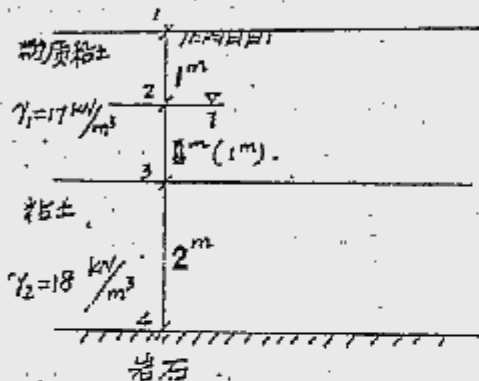 1
粘土
1m
2
γ₁=17 kN/m³
Ⅱm(1m).
3
粘土
2m
γ₂=18 kN/m³
4
岩石